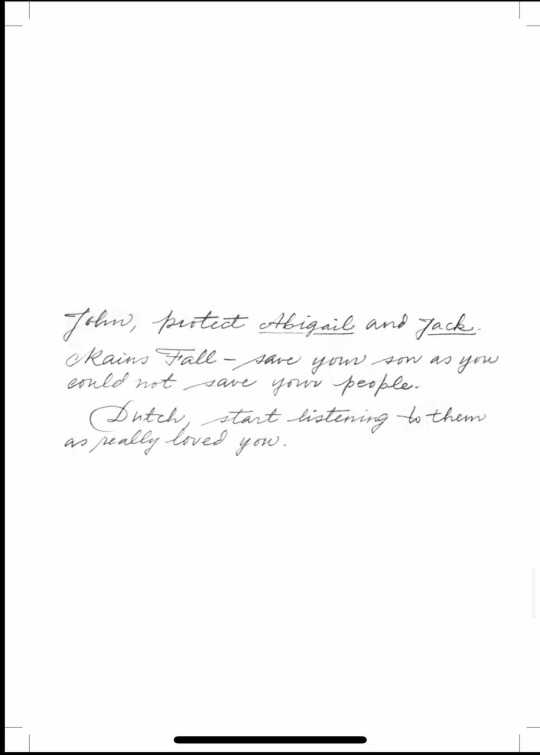 John, protect Abigail and Jack.
Rains Fall – save your son as you
could not save your people.
Dutch, start listening to them
as really loved you.